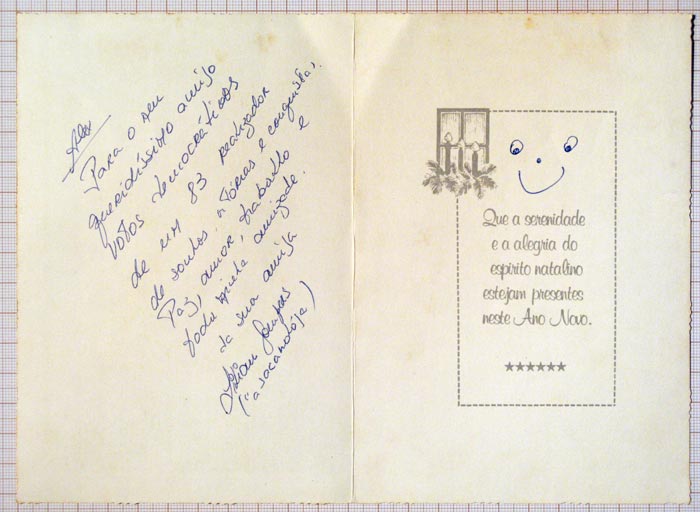 Alex
Para o seu
queridíssimo amigo
votos democráticos
de um 83 realizador
de sonhos, vitórias e conquistas,
Paz, amor, trabalho e
toda minha amizade.
da sua amiga
Que a serenidade
e a alegria do
espirito natalino
estejam presentes
neste Ano Novo.